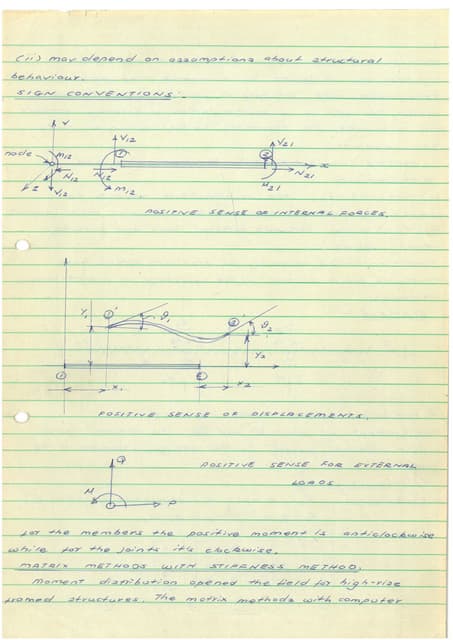 (ii) may depend on assumptions about structural
behaviour.
SIGN CONVENTIONS:
Y
node
M12
N12
V12
Z
V12
1
N12
M12
V21
2
x
N21
M21
POSITIVE SENSE OF INTERNAL FORCES.
Y1
1'
θ1
2'
θ2
Y2
1
2
x1
x2
POSITIVE SENSE OF DISPLACEMENTS.
Q
M
P
POSITIVE SENSE FOR EXTERNAL
LOADS
For the members the positive moment is anticlockwise
while for the joints it's clockwise.
MATRIX METHODS WITH STIFFNESS METHOD.
Moment distribution opened the field for high-rize
framed structures. The matrix methods with computer